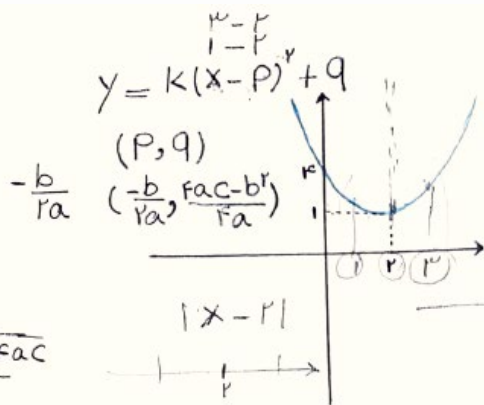 ۳-۲
۱-۲
y = k(x-p)^۲ + q
(p, q)
-b/۲a (-b/۲a, ۴ac-b^۲/۴a)
۴
۱
۱ ۲ ۳
|x-۲|
۴ac
۲